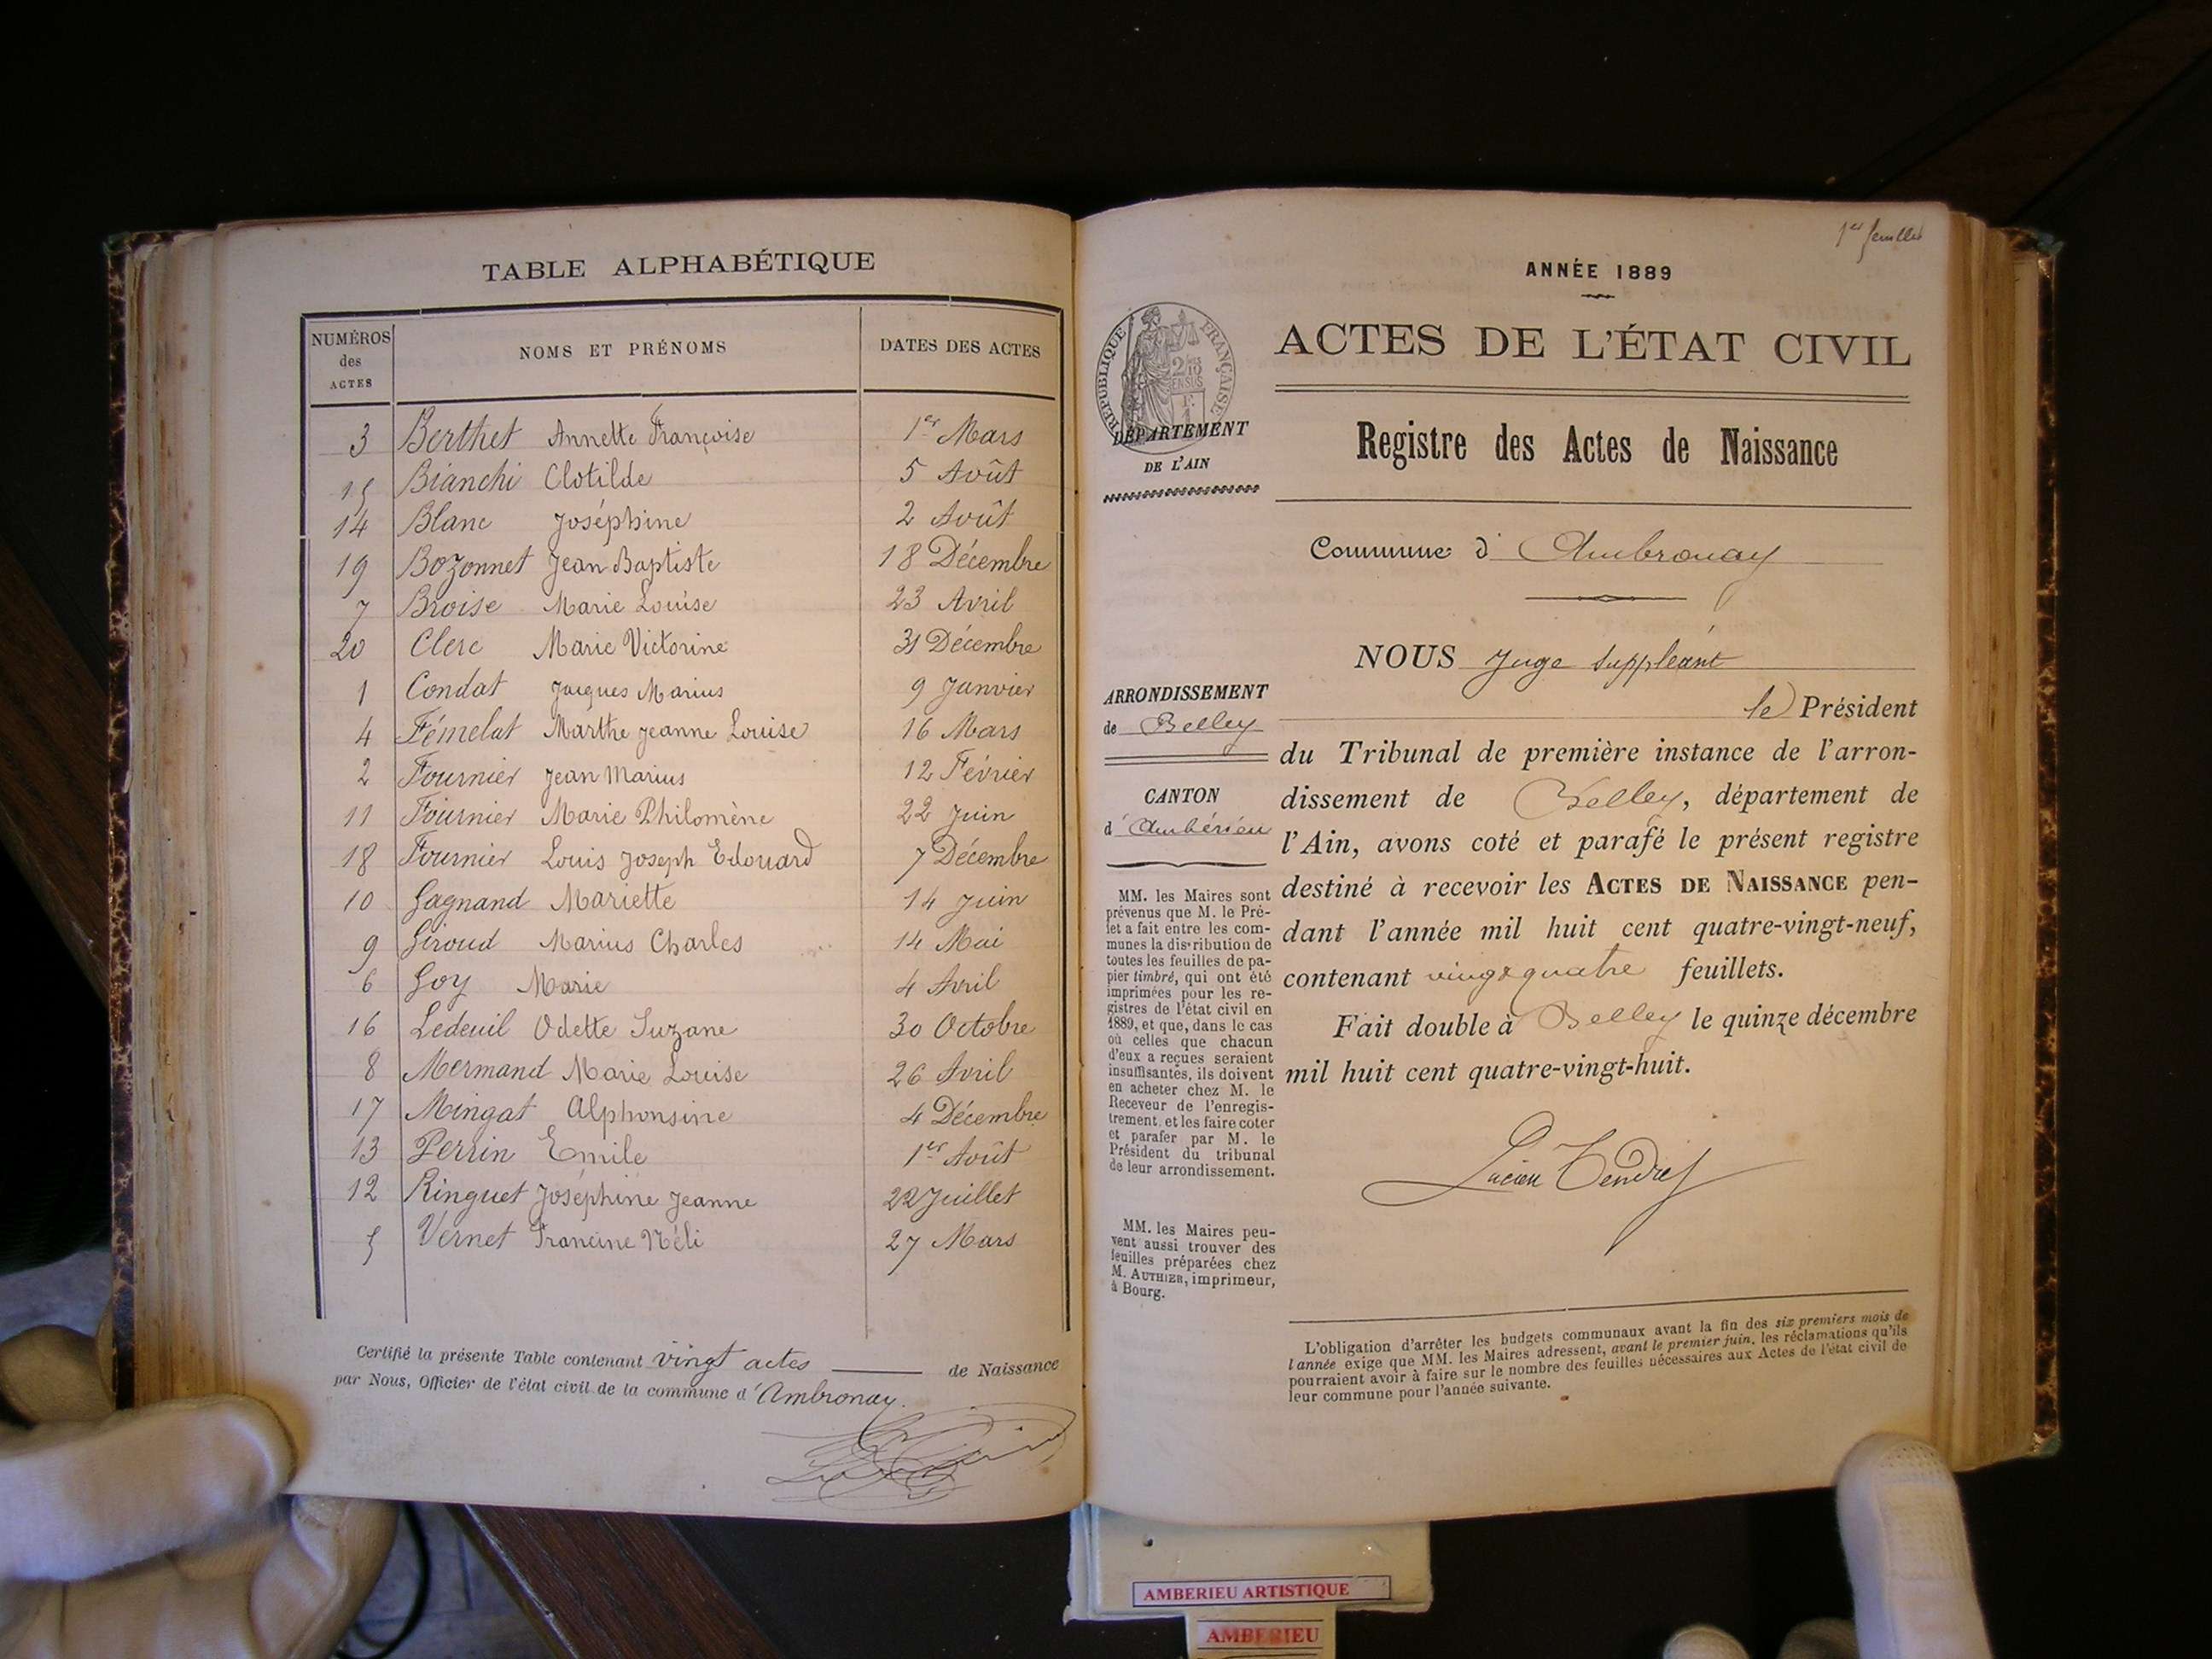 TABLE ALPHABÉTIQUE
NUMÉROS des ACTES NOMS ET PRÉNOMS DATES DES ACTES
3 Berthet Annette Françoise 1er Mars
15 Bianchi Clotilde 5 Août
14 Blanc Joséphine 2 Août
19 Bozonnet Jean Baptiste 18 Décembre
7 Broise Marie Louise 23 Avril
20 Clerc Marie Victorine 31 Décembre
1 Condat Jacques Marius 9 Janvier
4 Fémelat Marthe Jeanne Louise 16 Mars
2 Fournier Jean Marius 12 Février
11 Fournier Marie Philomène 22 Juin
18 Fournier Louis Joseph Edouard 7 Décembre
10 Gagnand Mariette 14 Juin
9 Giroud Marius Charles 14 Mai
6 Goy Marie 4 Avril
16 Ledeuil Odette Suzane 30 Octobre
8 Mermand Marie Louise 26 Avril
17 Mingat Alphonsine 4 Décembre
13 Perrin Emile 1er Août
12 Ringuet Joséphine Jeanne 22 Juillet
5 Vernet Francine Néli 27 Mars
Certifié la présente Table contenant vingt actes de Naissance
par Nous, Officier de l'état civil de la commune d'Ambronay.
1er feuillet
ANNÉE 1889
RÉPUBLIQUE FRANÇAISE
DÉPARTEMENT
DE L'AIN
ACTES DE L'ÉTAT CIVIL
Registre des Actes de Naissance
Commune d'Ambronay
NOUS Juge suppléant
le Président
du Tribunal de première instance de l'arron-
dissement de Belley, département de
l'Ain, avons coté et parafé le présent registre
destiné à recevoir les ACTES DE NAISSANCE pen-
dant l'année mil huit cent quatre-vingt-neuf,
contenant vingt quatre feuillets.
Fait double à Belley le quinze décembre
mil huit cent quatre-vingt-huit.
Lucien Tendret
ARRONDISSEMENT
de Belley
CANTON
d'Ambérieu
MM. les Maires sont
prévenus que M. le Pré-
fet a fait entre les com-
munes la distribution de
toutes les feuilles de pa-
pier timbré, qui ont été
imprimées pour les re-
gistres de l'état civil en
1889, et que, dans le cas
où celles que chacun
d'eux a reçues seraient
insuffisantes, ils doivent
en acheter chez M. le
Receveur de l'enregis-
trement, et les faire coter
et parafer par M. le
Président du tribunal
de leur arrondissement.
MM. les Maires peu-
vent aussi trouver des
feuilles préparées chez
M. AUTHIER, imprimeur,
à Bourg.
L'obligation d'arrêter les budgets communaux avant la fin des six premiers mois de
l'année exige que MM. les Maires adressent, avant le premier juin, les réclamations qu'ils
pourraient avoir à faire sur le nombre des feuilles nécessaires aux Actes de l'état civil de
leur commune pour l'année suivante.
AMBERIEU ARTISTIQUE
AMBERIEU